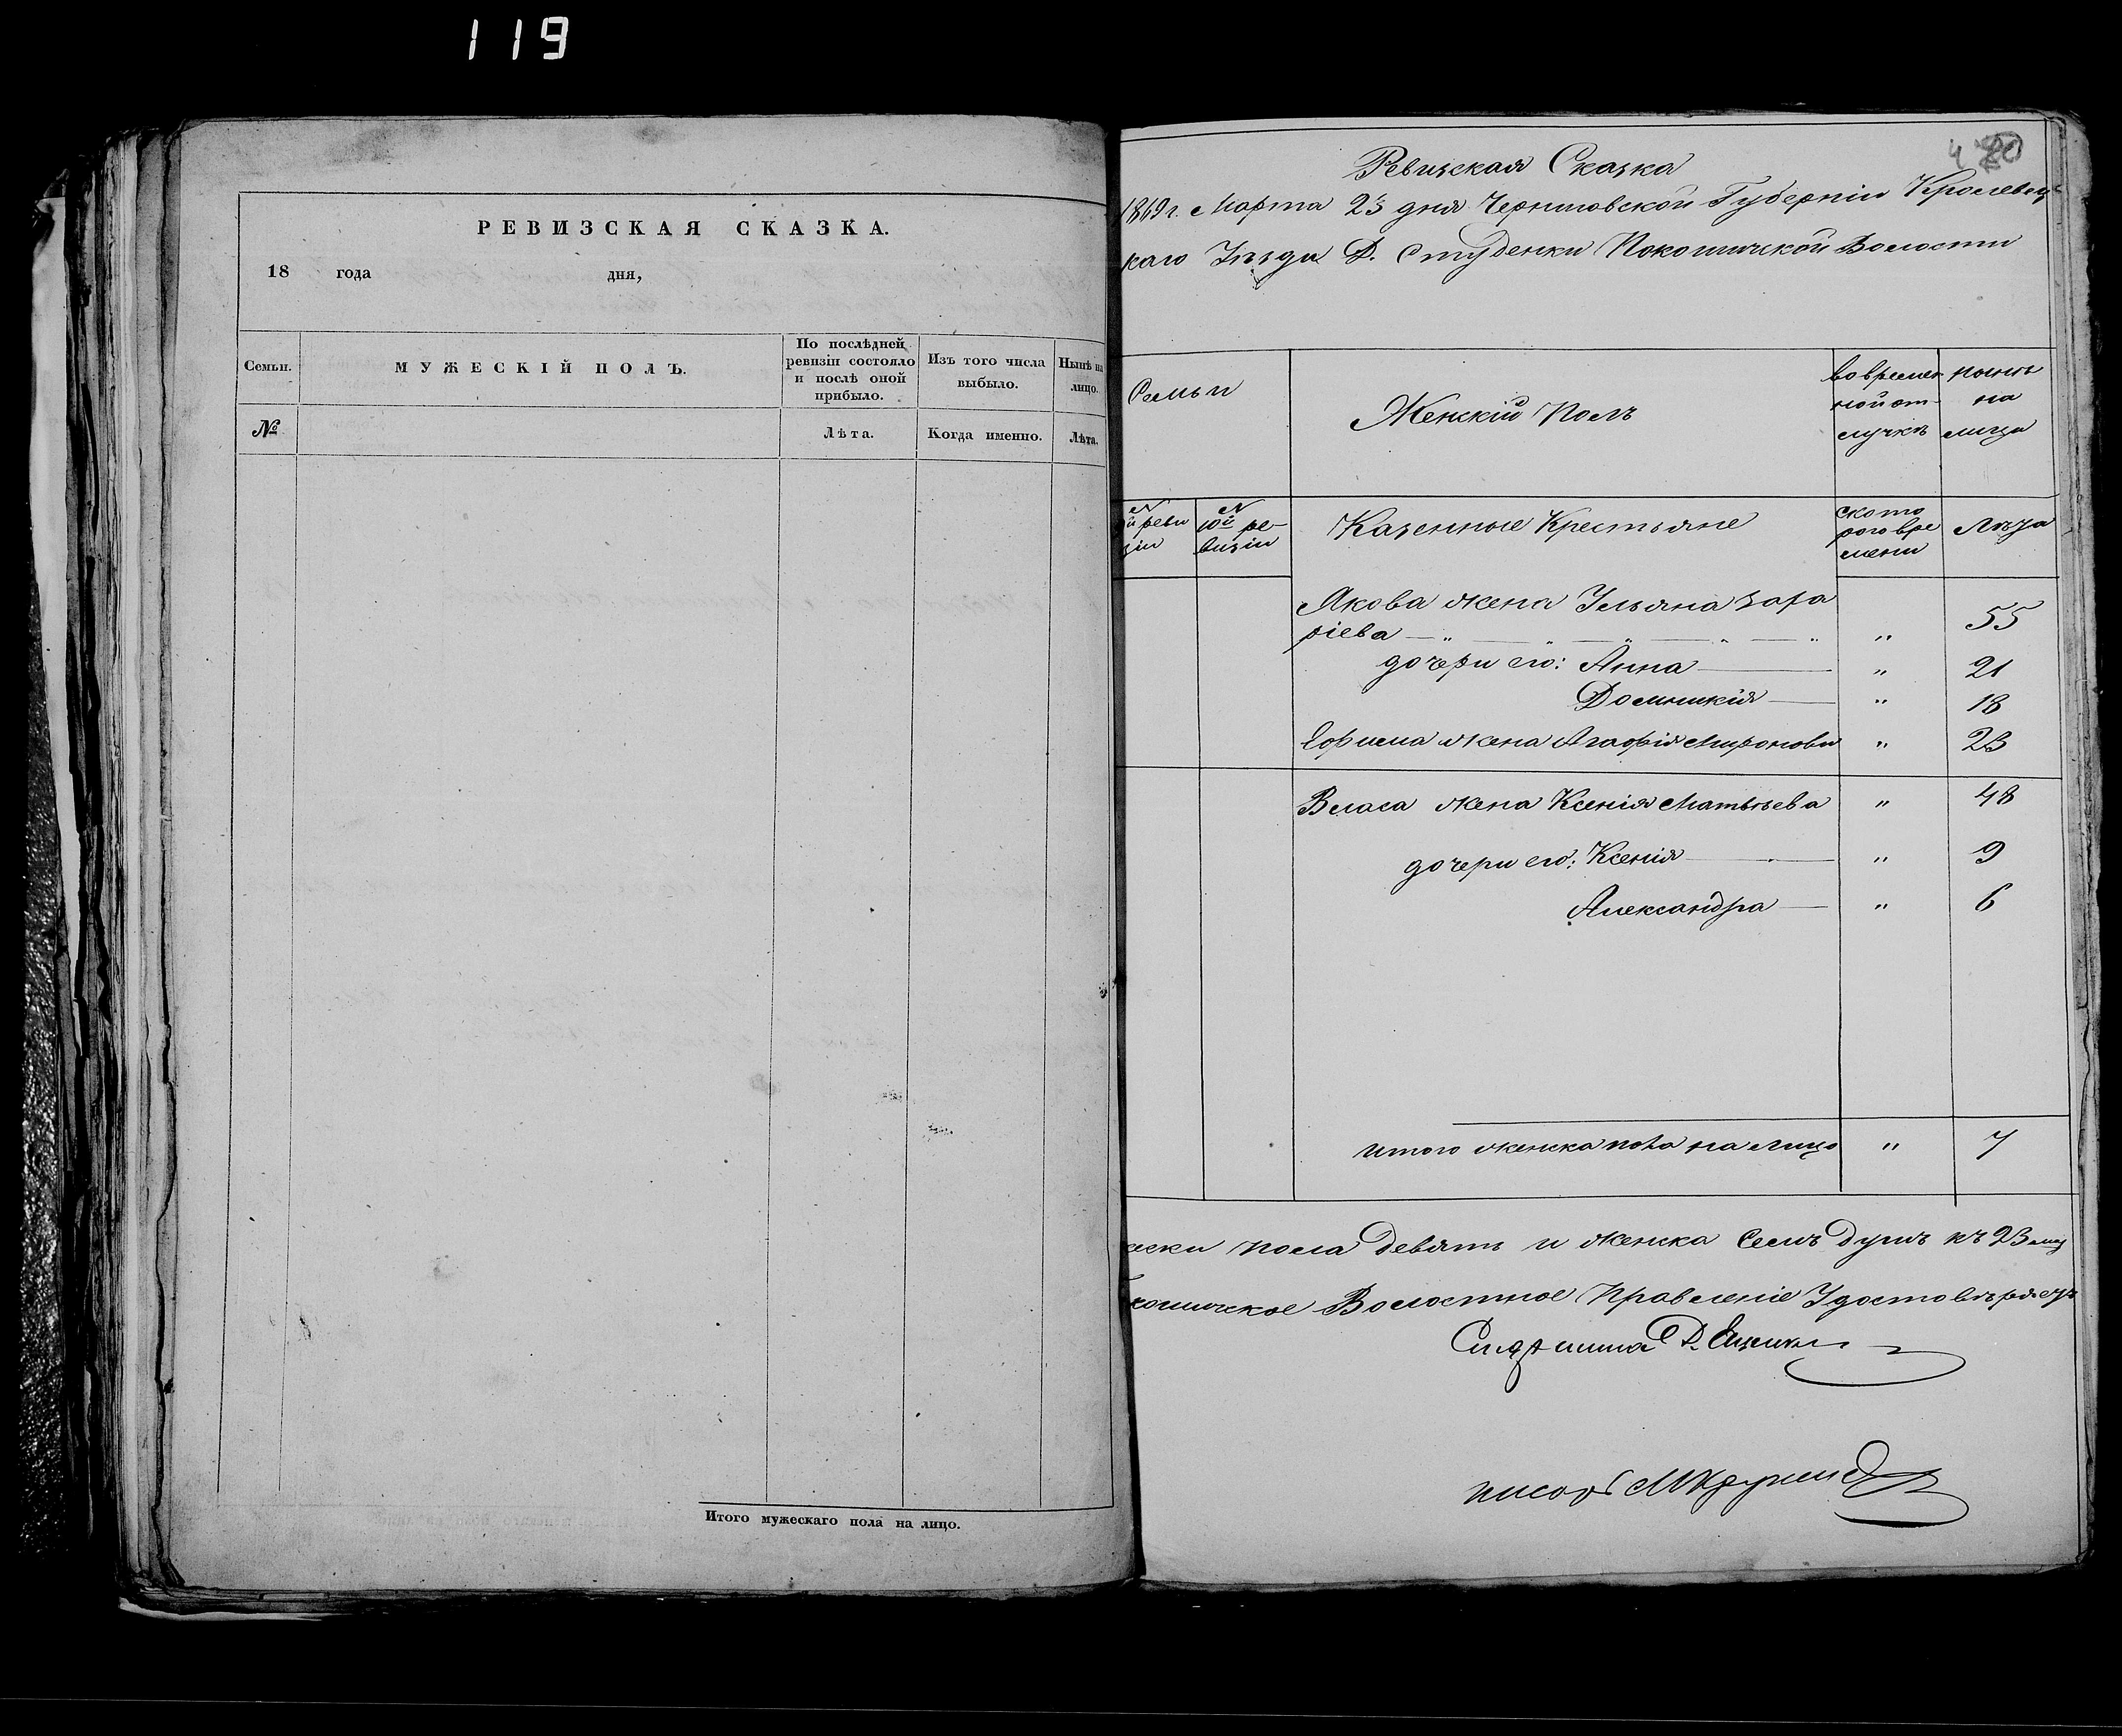 119
РЕВИЗСКАЯ СКАЗКА.
18 года дня,
Семьи.
МУЖЕСКІЙ ПОЛЪ.
По послѣдней
ревизіи состояло
и послѣ оной
прибыло.
Изъ того числа
выбыло.
Нынѣ на
лицо.
№
Лѣта.
Когда именно.
Лѣта.
Итого мужескаго пола на лицо.
Ревизская Сказка
1869 г. Марта 23 дня Черниговской Губерніи Кролевец
каго Уѣзда Д. Студенки Покошичской Волости
Семьи
Женскій Полъ
во времен
ной от-
лучкѣ
нынѣ
на
лицо
N
й реви
зіи
N
10й ре-
визіи
Казенные Крестьяне
ск ото
рого вре
мени
Лѣта
Якова жена Ульяна Заха
ріева — " — " — " — " — " " 55
дочери его: Анна — " 21
Домникія — " 18
Ефима жена Агафія Миронова " 23
Власа жена Ксенія Матвѣева " 48
дочери его: Ксенія — " 9
Александра — " 6
итого женска пола на лицо " 7
ески пола девять и женска семъ душъ къ 23 му
кошичское Волостное Правленіе Удостовѣряетъ
Старшина Д.
писарь